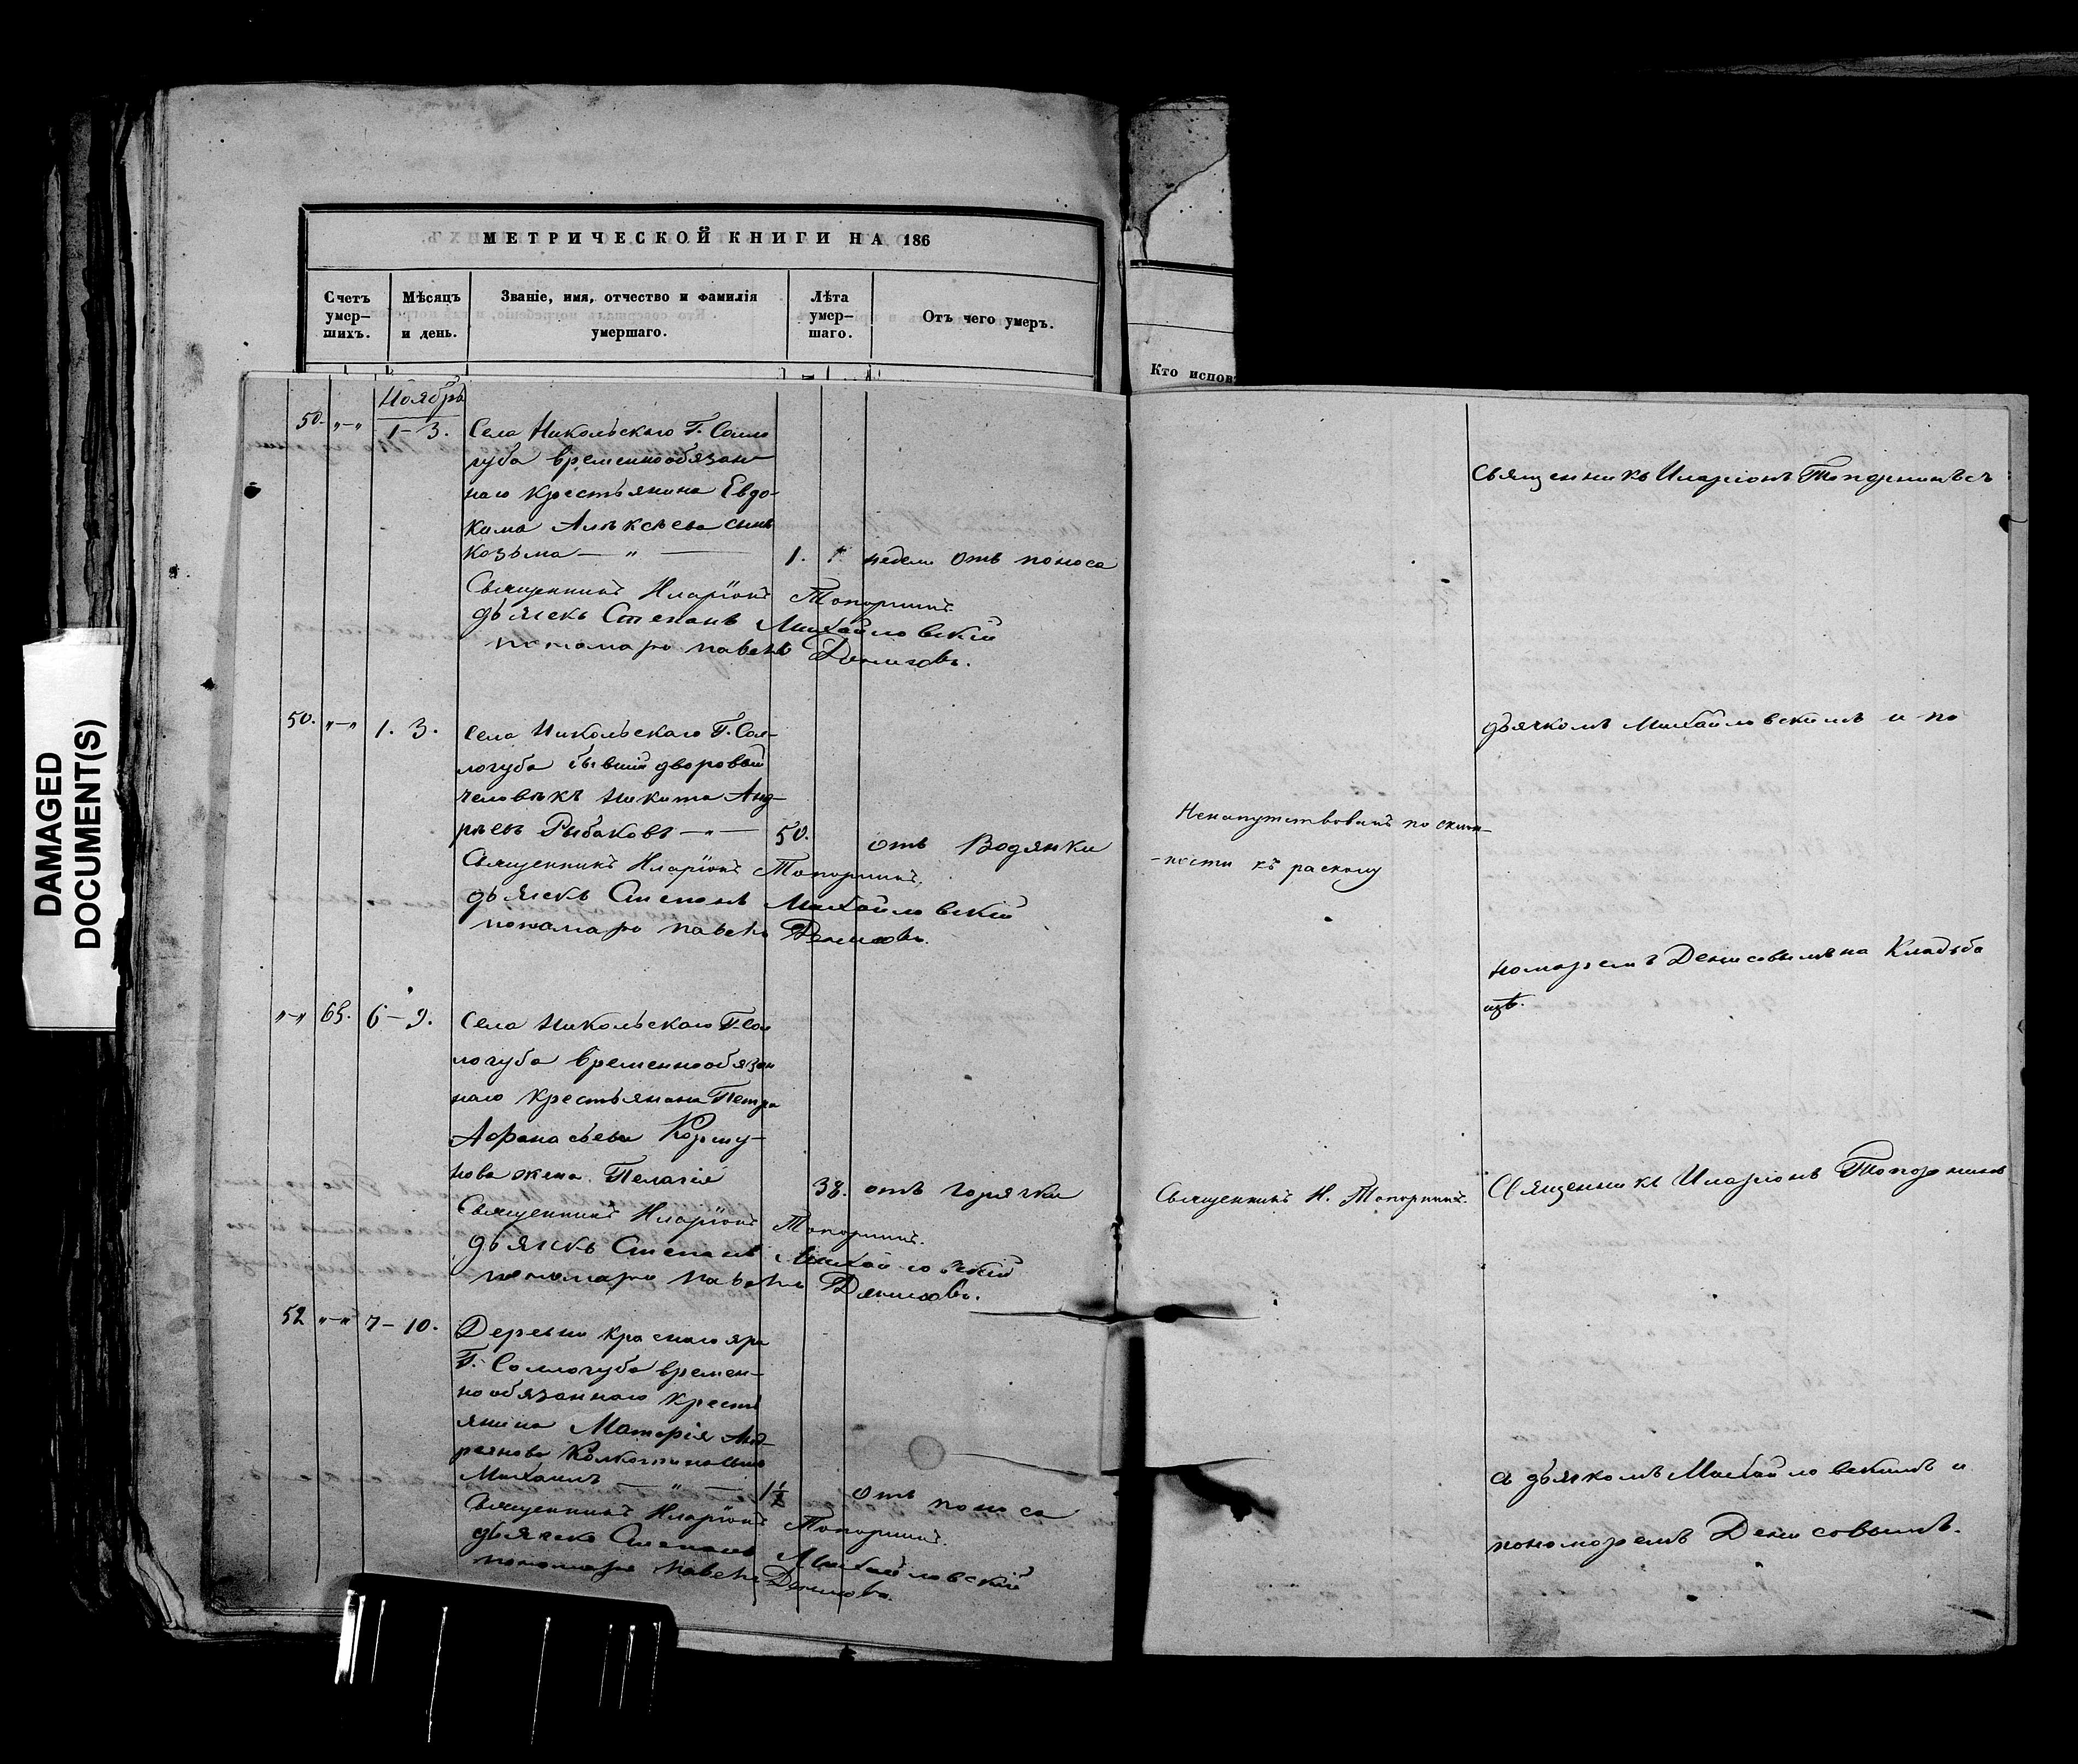 DAMAGED
DOCUMENT(S)
МЕТРИЧЕСКОЙ КНИГИ НА 186
Счетъ умер-шихъ.
Мѣсяцъ и день.
Званіе, имя, отчество и фамилія умершаго.
Лѣта умер-шаго.
Отъ чего умеръ.
Кто испов
Ноябрь
50. „–„ 1–3. Села Никольскаго Г. Солло
губа временнообязан
наго крестьянина Евдо-
кима Алексѣева сынъ
Козьма — „ — 1. недели Отъ поноса
Священникъ Иларіонъ Топорнинъ.
дьячекъ Степанъ Михайловскій
пономарь Павелъ Денисовъ.
50. „–„ 1. 3. Села Никольскаго Г. Сол-
логуба бывшій дворовый
человѣкъ Никита Анд-
рѣевъ Рыбаковъ — „ — 50. отъ Водянки
Священникъ Иларіонъ Топорнинъ.
дьячекъ Степанъ Михайловскій
пономарь Павелъ Денисовъ.
„–„ 65. 6–9. Села Никольскаго Г. Сол
логуба временнообязан
наго крестьянина Петра
Афанасьева Коршу-
нова жена Пелагія 38. отъ горячки
Священникъ Иларіонъ Топорнинъ.
дьячекъ Степанъ Михайловскій
пономарь Павелъ Денисовъ.
52 „–„ 7–10. Деревни Краснаго яра
Г. Соллогуба времен-
нообязаннаго кресть
янина Анд-
реянова
Михаилъ — „ — 1½ Отъ поноса
Священникъ Иларіонъ Топорнинъ.
дьячекъ Степанъ Михайловскій
пономарь Павелъ Денисовъ.
Священникъ Иларіонъ Топорнинъ съ
дьячкомъ Михайловскимъ и по
Ненапутствованъ по склон-
-ности къ расколу
номаремъ Денисовымъ на Кладьба
щѣ.
Священникъ И. Топорнинъ.
Священникъ Иларіонъ Топорнинъ
съ дьячкомъ Михайловскимъ и
пономоремъ Денисовымъ.